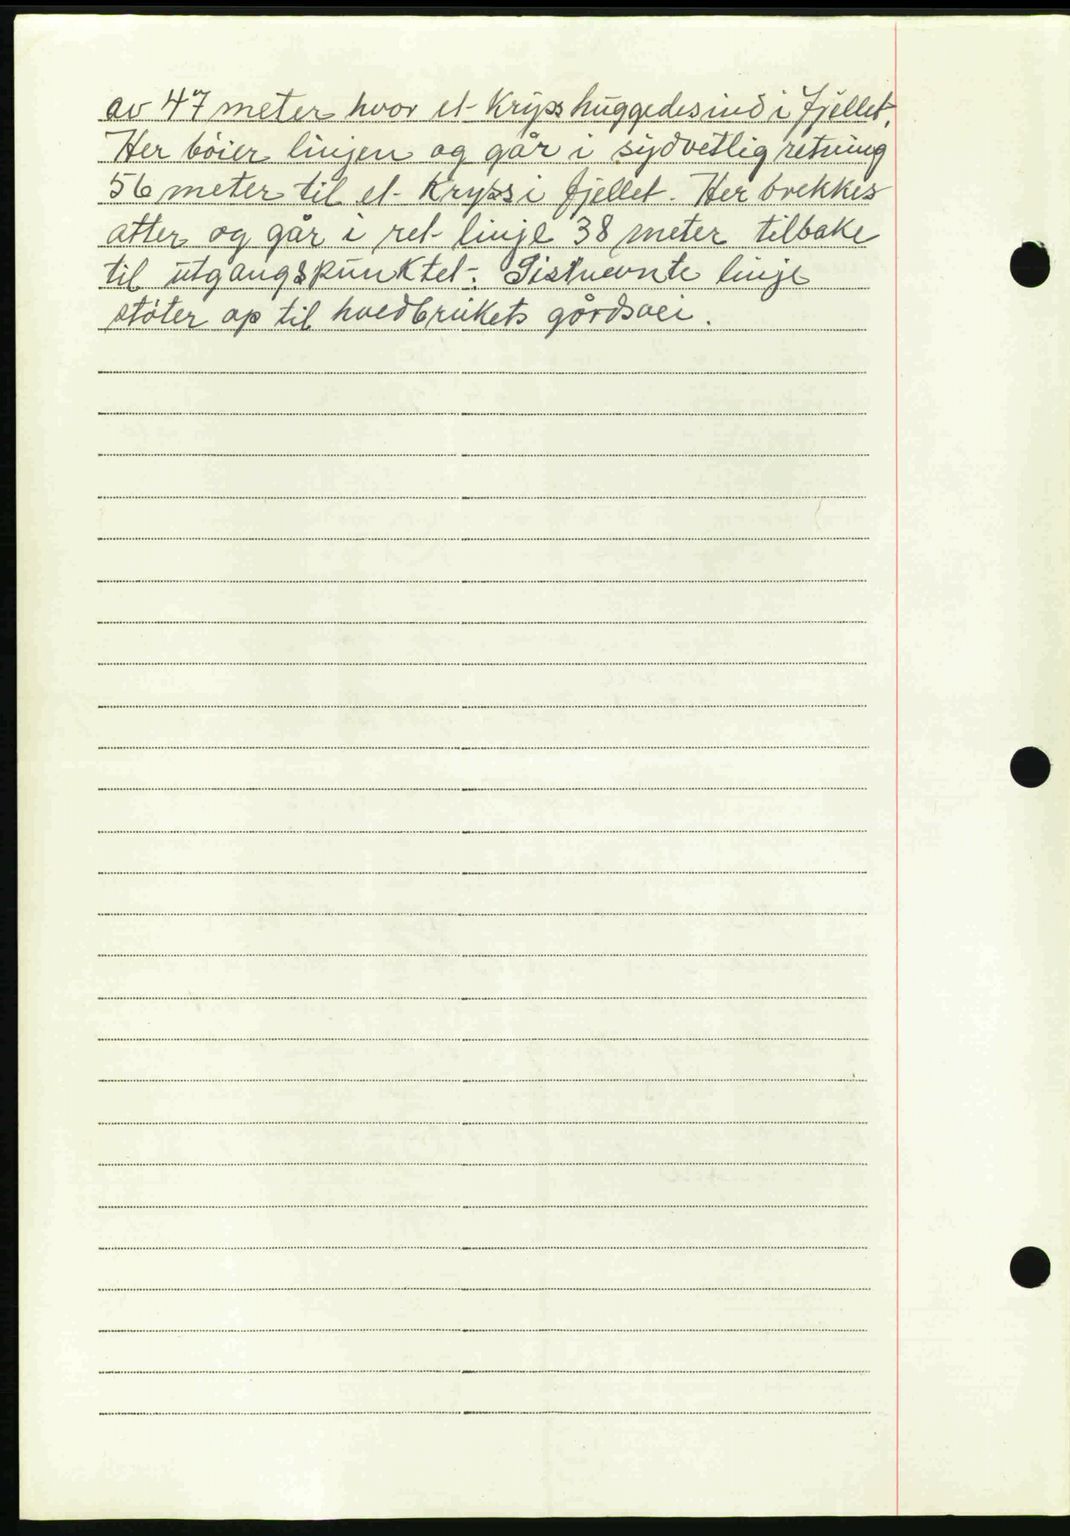 av 47 meter hvor et kryss huggedes ind i fjellet.
Her bøier linjen og går i sydvetlig retning
56 meter til et kryss i fjellet. Her brekkes
atter og går i ret linje 38 meter tilbake
til utgangspunktet. Sistnevnte linje
støter op til hvedbrukets gårdsvei.